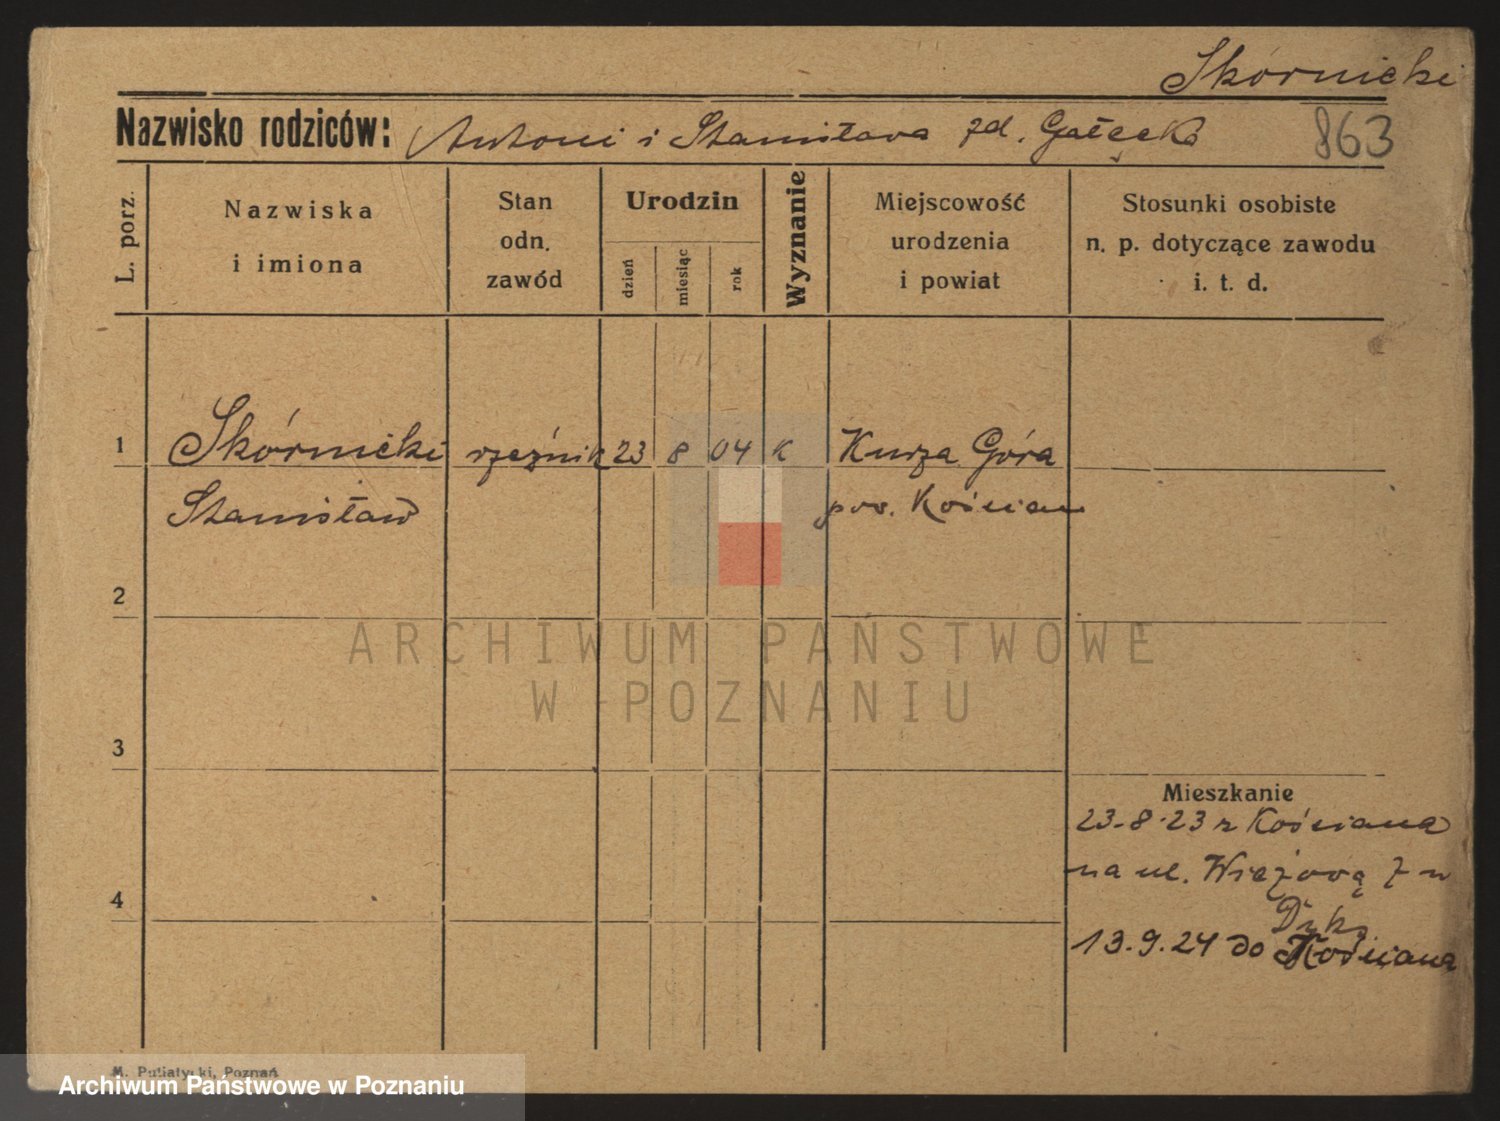 Skórnicki
Nazwisko rodziców: Antoni i Stanisława zd. Gałęcka
863
L. porz.
Nazwiska
i imiona
Stan
odn.
zawód
Urodzin
dzień
miesiąc
rok
Wyznanie
Miejscowość
urodzenia
i powiat
Stosunki osobiste
n. p. dotyczące zawodu
i. t. d.
1 Skórnicki rzeźnik 23 8 04 K Kurza Góra
Stanisław pow. Kościan
2
ARCHIWUM PAŃSTWOWE
W POZNANIU
3
Mieszkanie
23-8-23 z Kościana
na ul. Wieżową 7 u
4
13.9.24 do Kościana
M. Putiatycki, Poznań
Archiwum Państwowe w Poznaniu